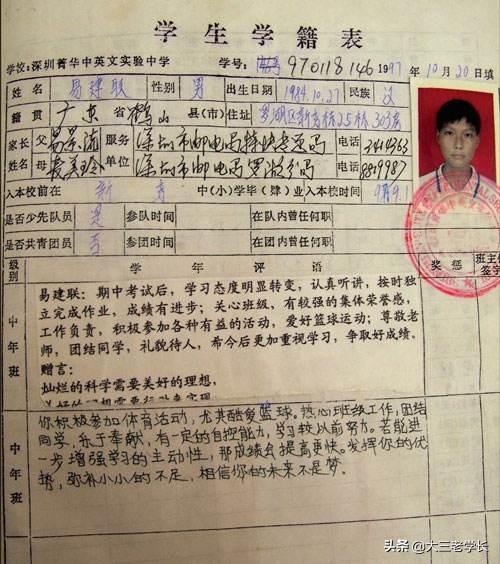 学生学籍表
学校:深圳菁华中英文实验中学 学号: 970118146 1997年10月20日填
姓名 易建联 性别 男 出生日期 1984.10.27 民族 汉
籍贯 广东省鹤山县(市) 住址 罗湖区 25栋303房
家长姓名 父 易景流 服务单位 深圳市邮电局特快专递局 电话
母 麦美玲 深圳市邮电局罗湖分局 电话
入本校前在 中(小)学毕(肄)业 入本校时间
是否少先队员 是 参队时间 在队内曾任何职
是否共青团员 否 参团时间 在团内曾任何职
级别 学年评语 奖惩 班主任签字
中年班
易建联:期中考试后,学习态度明显转变,认真听讲,按时独
立完成作业,成绩有进步;关心班级,有较强的集体荣誉感,
工作负责,积极参加各种有益的活动,爱好篮球运动;尊敬老
师,团结同学,礼貌待人,希今后更加重视学习,争取好成绩。
赠言:
灿烂的科学需要美好的理想,
中年班
你积极参加体育活动,尤其酷爱篮球。热心班级工作,团结
同学,乐于奉献,有一定的自控能力,学习较以前努力。若能进
一步增强学习的主动性,那成绩会提高更快。发挥你的优
势,弥补小小的不足,相信你的未来不是梦。
头条 @大三老学长